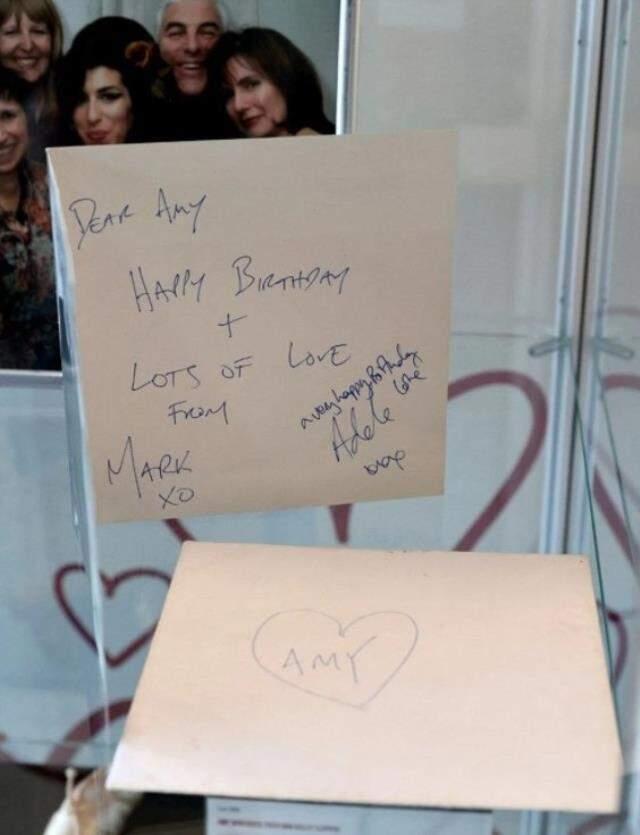 DEAR AMY
HAPPY BIRTHDAY
+
LOTS OF LOVE
FROM
MARK
XO
a very happy Birthday
love
Adele
xxx
AMY